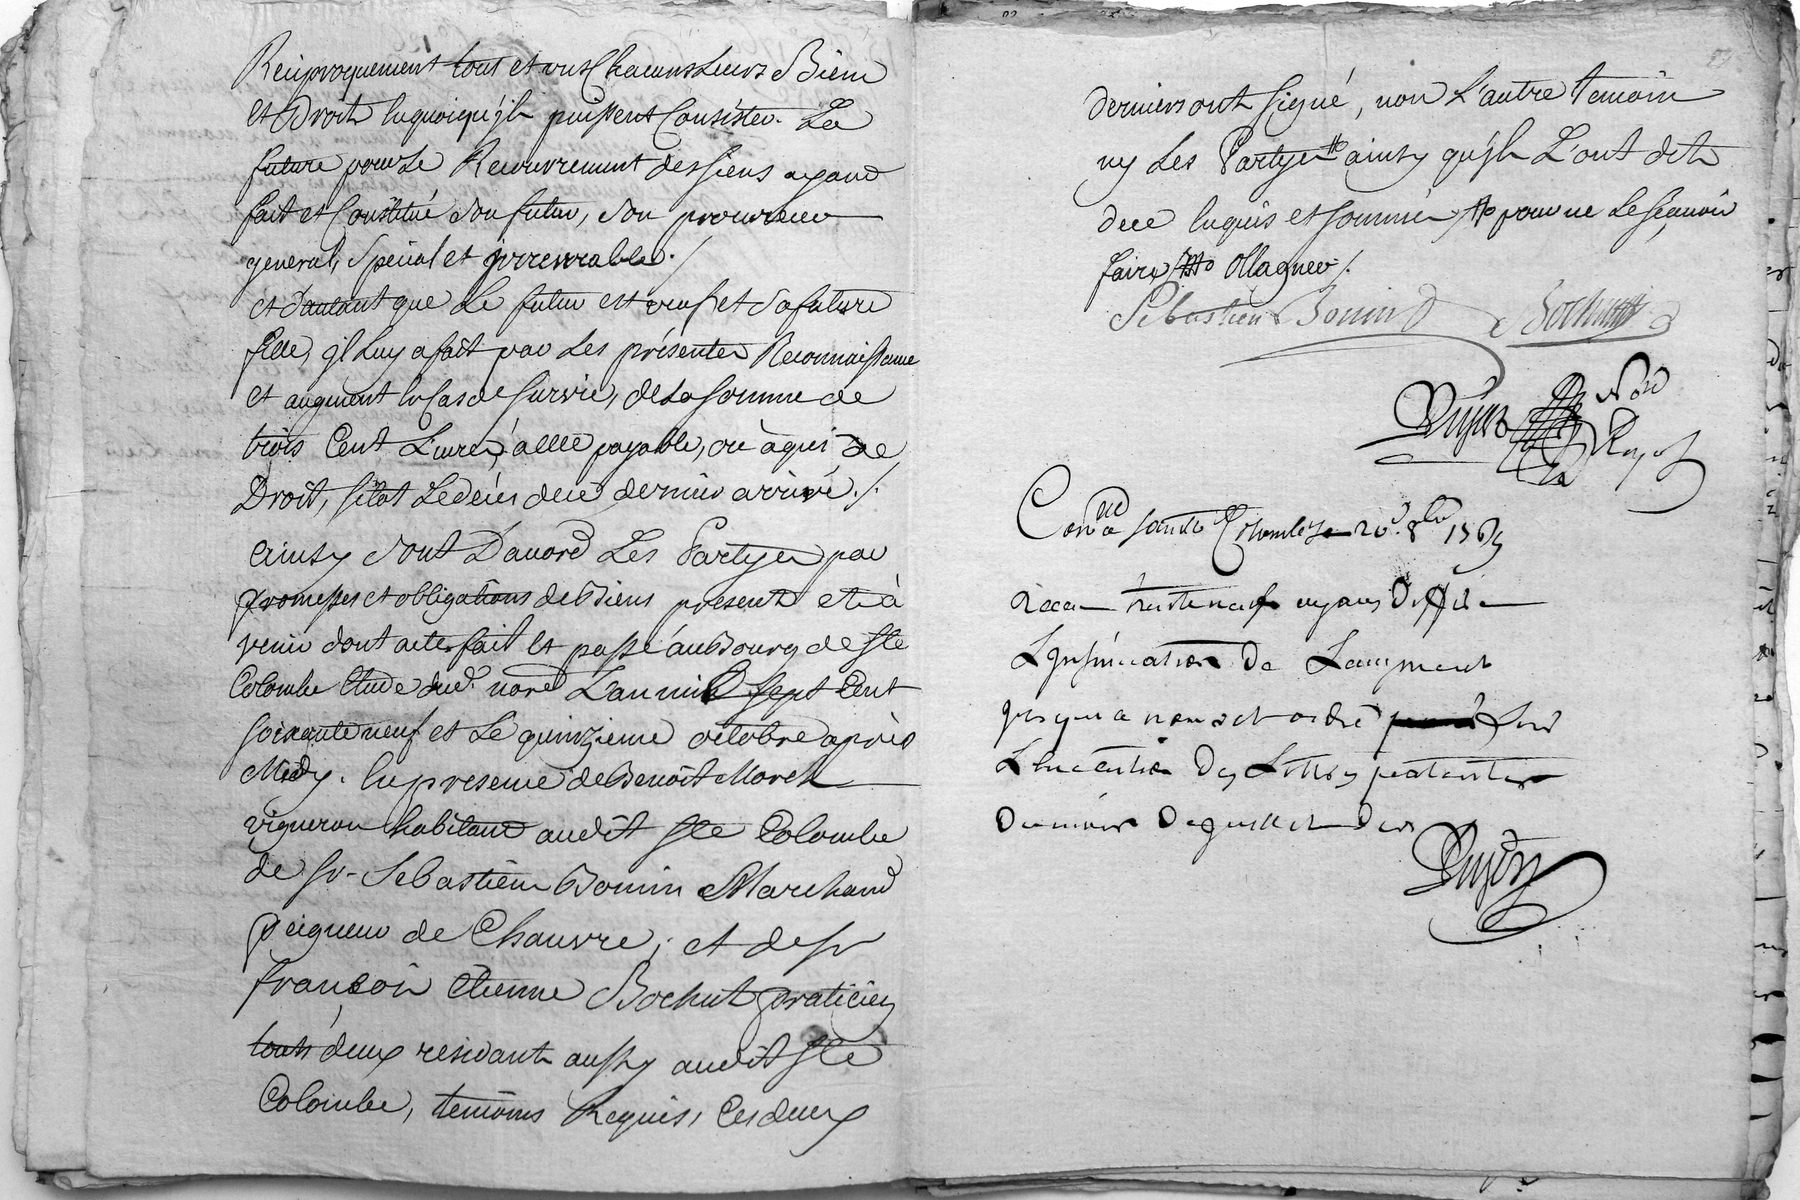 Reciproquement tout et uns Chacuns Leurs Bien
et Droits Inquoiqu'jls puissent Consister. La
future pour Le Recouvrement des siens ayand
fait et Constitué Son futur, Son procureur
general, Spécial et jrrevocable ./
et d'autant que Le futur est veuf et Sa future
fille, jl Luy a fait par Les présentes Reconnaissance
et augment In Cas de Survie, de La Somme de
trois Cent Livres, à elle payable, où à qui de
Droit, sitôt Le décés de ce dernier arrivé ./.
ainsy Sont D'accord Les Partyes par
promesses et obligations de Biens présents et à
venir dont acte, fait et passé au Bourg de Ste
Colombe Etude dud. nore L'an mil Sept Cent
soixante neuf et Le quinzieme octobre après
Midy. In presence de Benoît Morel
vigneron habitand audit Ste Colombe
de Sr. Sebastien Bonin Marchand
peigneur de Chanvre, et de Sr
françois Etienne Bochut praticien
touts deux residants aussy audit Ste
Colombe, temoins Requis, Ces deux
derniers ont signé, non L'autre temoin
ny Les Partyes ainsy qu'jls L'ont dit
de ce Inquis et sommés pour ne Le sçavoir
faire Ollagner ./.
Sebastien Bonin Bochut
Dujast Nore
Royal
Con.lé a Sainte Colombe Le 20e 8bre 1769
Recu trente neuf
L'insinuation De L'augment
jusqu'a nouvel ordre Sur
L'execution Des Lettres patentes
Du mois De juillet Der